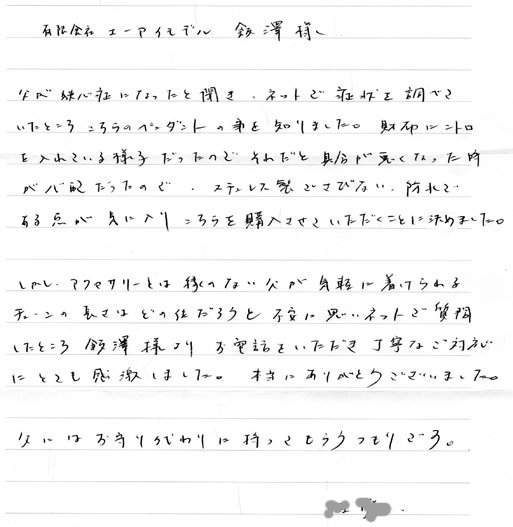 有限会社 エーアイモデル 飯澤 様へ
父が狭心症になったと聞き、ネットで症状を調べて
いたところこちらのペンダントの事を知りました。財布にニトロ
を入れている様子だったのでそれだと具合が悪くなった時
が心配だったので、ステンレス製でさびない、防水で
ある点が気に入りこちらを購入させていただくことに決めました。
しかし、アクセサリーとは縁のない父が身軽に着けられる
チェーンの長さはどの位だろうと不安に思いネットで質問
したところ飯澤様よりお電話をいただき丁寧なご対応
にとても感激しました。本当にありがとうございました。
父にはお守り代わりに持ってもらうつもりです。